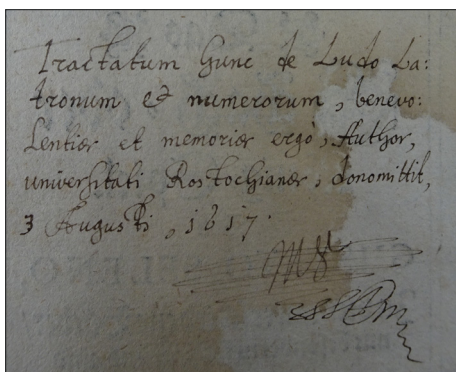 Tractatum hunc de Ludo La:
tronum et numerorum, benevo:
Lentiæ et memoriæ ergo, Author,
universitati Rostochianæ, dono mittit,
3 Augusti, 1617.